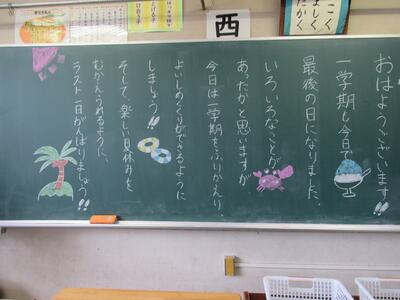 おはようございます!!
一学期も今日で
最後の日になりました。
いろいろなことが
あったかと思いますが
今日は一学期をふりかえり、
よいしめくくりができるように
しましょう!!
そして、楽しい夏休みを
むかえられるように、
ラスト一日がんばりましょう!!
西